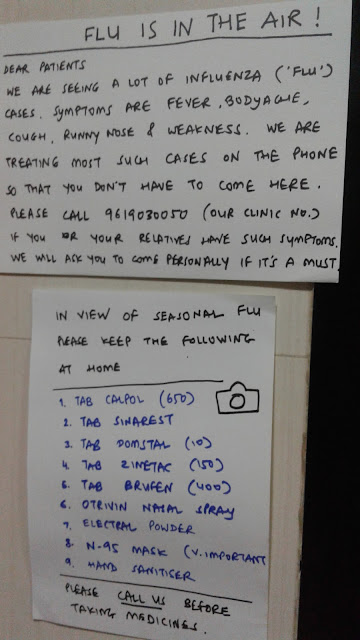 FLU IS IN THE AIR !
DEAR PATIENTS
WE ARE SEEING A LOT OF INFLUENZA ('FLU')
CASES. SYMPTOMS ARE FEVER, BODYACHE,
COUGH, RUNNY NOSE & WEAKNESS. WE ARE
TREATING MOST SUCH CASES ON THE PHONE
SO THAT YOU DON'T HAVE TO COME HERE.
PLEASE CALL 9619030050 (OUR CLINIC NO.)
IF YOU OR YOUR RELATIVES HAVE SUCH SYMPTOMS.
WE WILL ASK YOU TO COME PERSONALLY IF IT'S A MUST.
IN VIEW OF SEASONAL FLU
PLEASE KEEP THE FOLLOWING
AT HOME
1. TAB CALPOL (650)
2. TAB SINAREST
3. TAB DOMSTAL (10)
4. TAB ZINETAC (150)
5. TAB BRUFEN (400)
6. OTRIVIN NASAL SPRAY
7. ELECTRAL POWDER
8. N-95 MASK (V. IMPORTANT
9. HAND SANITISER
PLEASE CALL US BEFORE
TAKING MEDICINES.